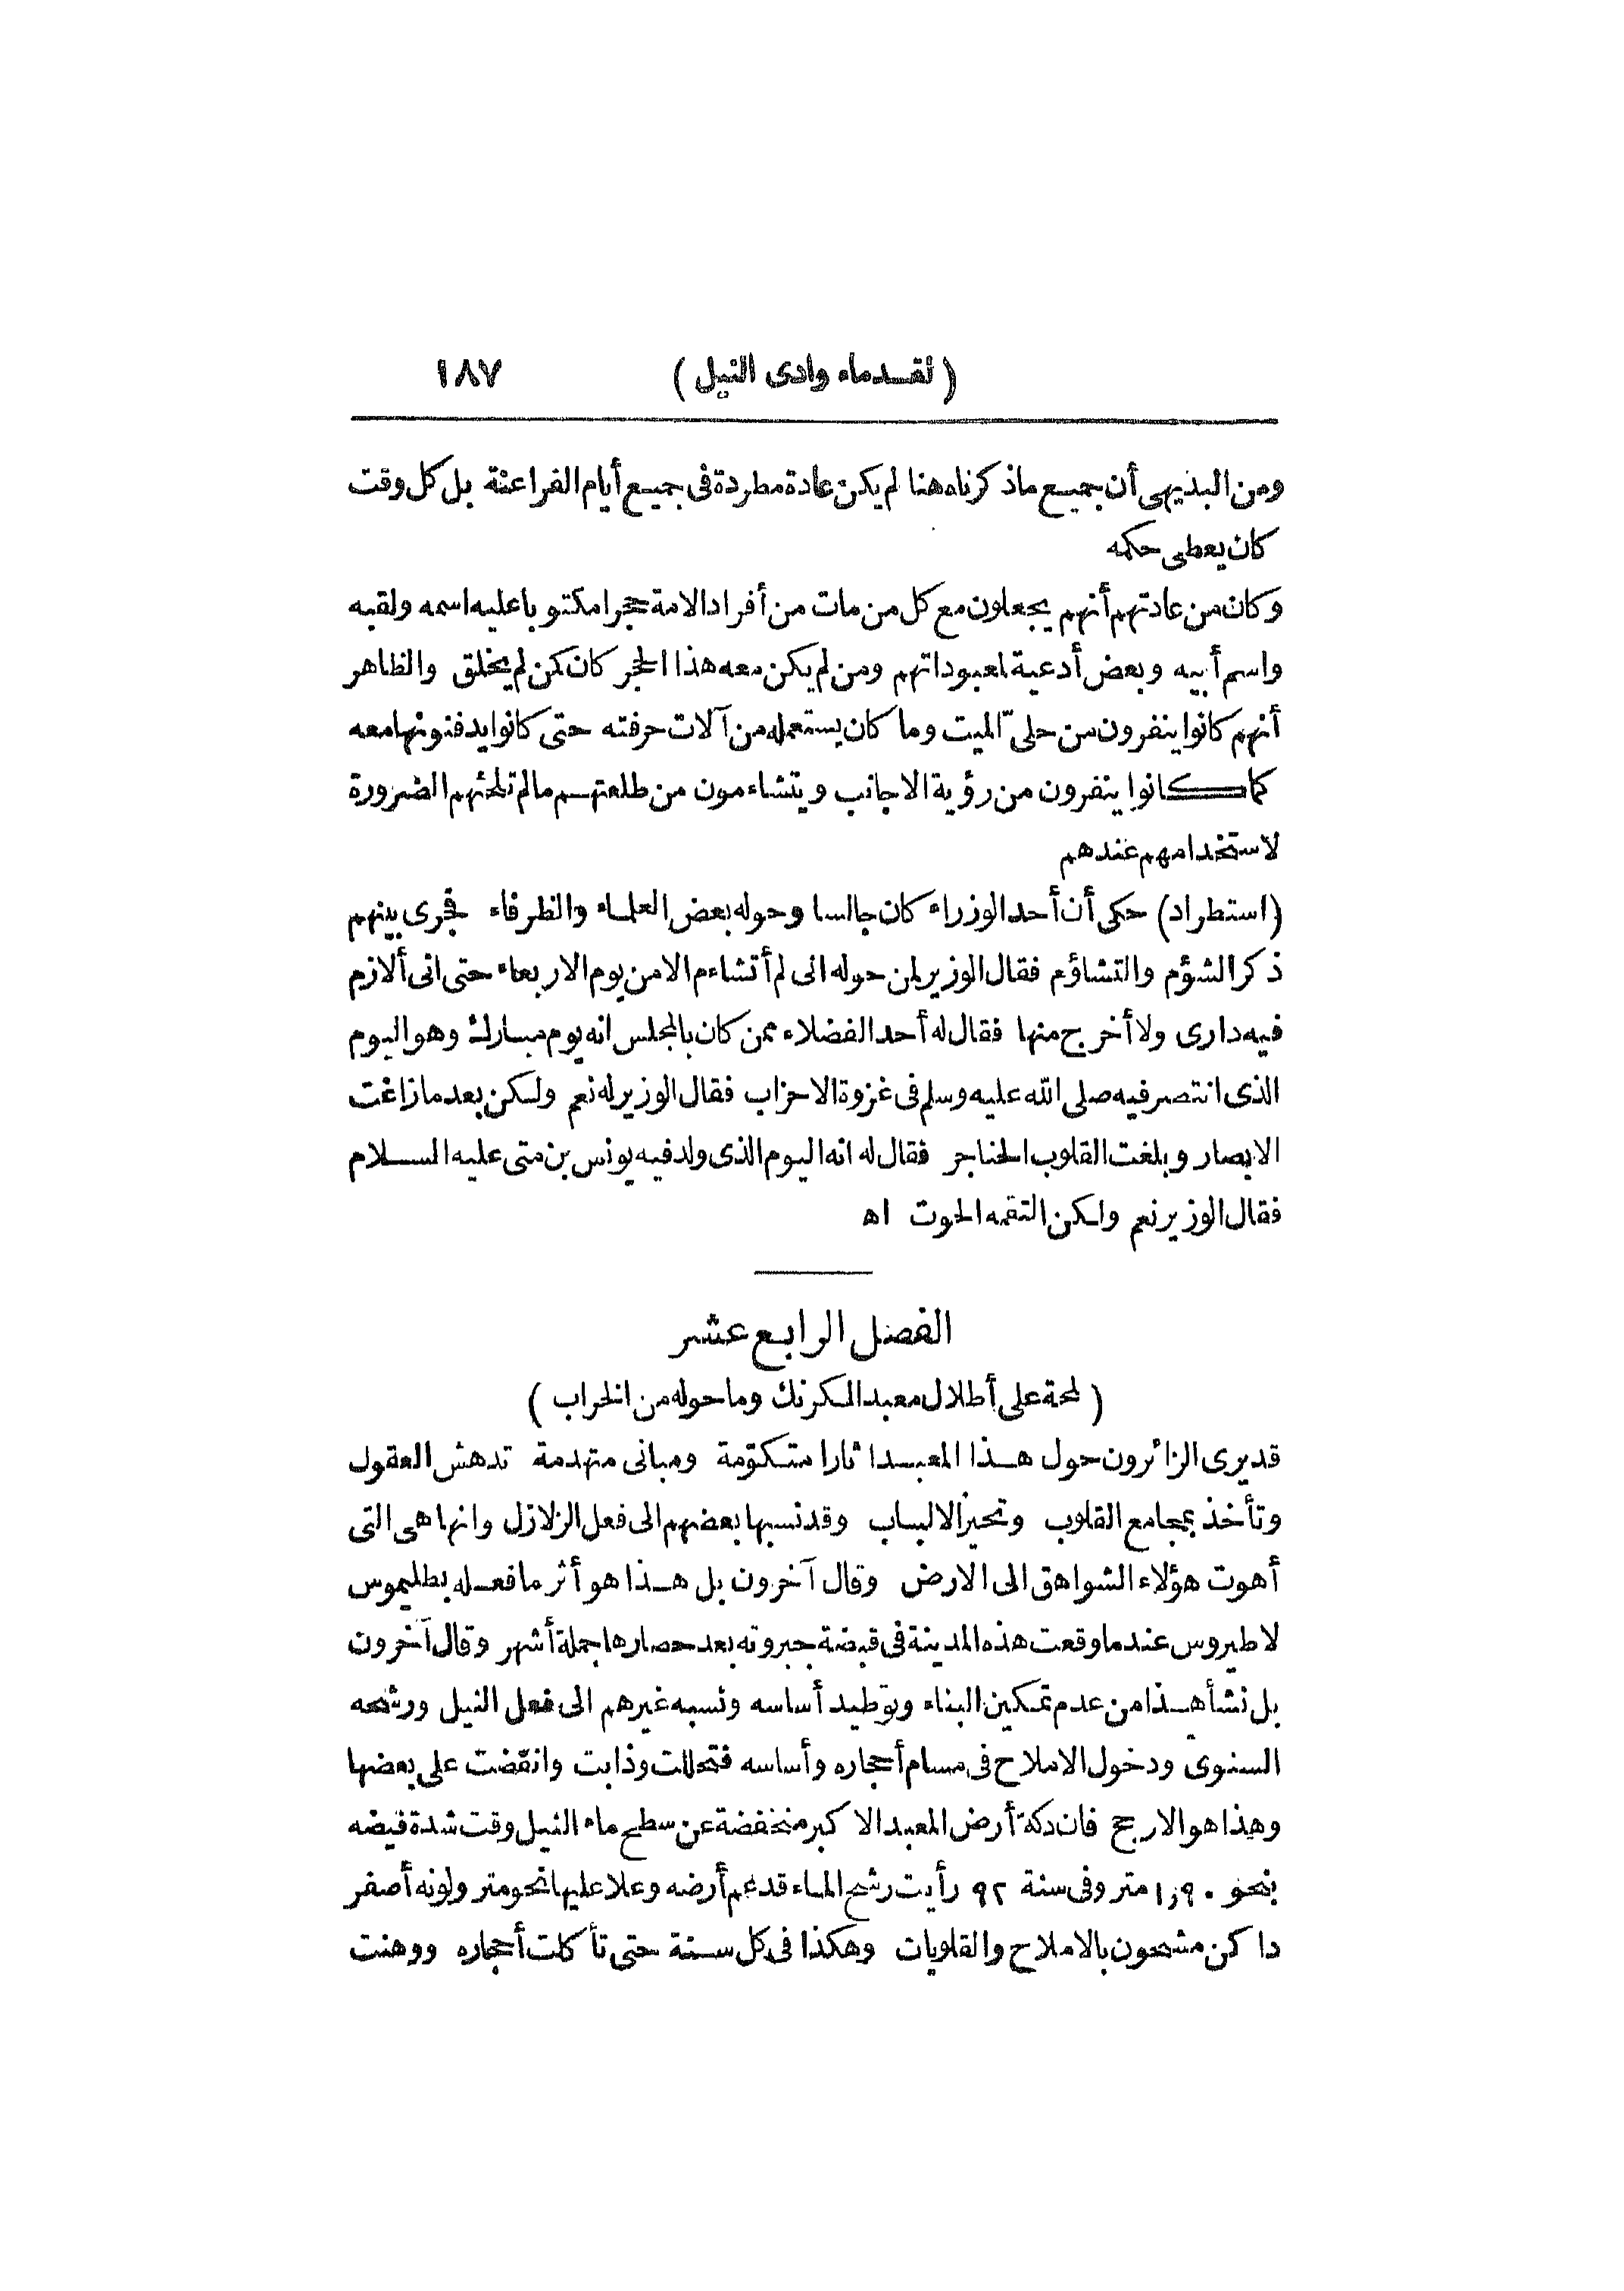 (لقدماء وادى النيل) ١٨٧
ومن البديهى أن جميع ماذكرناه هنا لم يكن عادة مطردة فى جميع أيام الفراعنة بل كل وقت
كان يعطى حكمه
وكان من عادتهم أنهم يجعلون مع كل من مات من أفراد الامة حجرا مكتوبا عليه اسمه ولقبه
واسم أبيه وبعض أدعية لمعبوداتهم ومن لم يكن معه هذا الحجر كان كمن لم يخلق والظاهر
أنهم كانوا ينفرون من حلىّ الميت وما كان يستعمله من آلات حرفته حتى كانوا يدفنونها معه
كما كانوا ينفرون من رؤية الاجانب ويتشاءمون من طلعتهم مالم تلجئهم الضرورة
لاستخدامهم عندهم
(استطراد) حكى أن أحد الوزراء كان جالسا وحوله بعض العلماء والظرفاء فجرى بينهم
ذكر الشؤم والتشاؤم فقال الوزير لمن حوله انى لم أتشاءم الا من يوم الاربعاء حتى انى ألازم
فيه دارى ولا أخرج منها فقال له أحد الفضلاء ممن كان بالمجلس انه يوم مبارك وهو اليوم
الذى انتصر فيه صلى الله عليه وسلم فى غزوة الاحزاب فقال الوزير له نعم ولكن بعد مازاغت
الابصار وبلغت القلوب الحناجر فقال له انه اليوم الذى ولد فيه يونس بن متى عليه السلام
فقال الوزير نعم ولكن التقمه الحوت اه
الفصل الرابع عشر
(لمحة على أطلال معبد الكرنك وما حوله من الخراب)
قد يرى الزائرون حول هذا المعبد اثارا متكوّمة ومبانى متهدمة تدهش العقول
وتأخذ بمجامع القلوب وتحير الالباب وقد نسبها بعضهم الى فعل الزلازل وانها هى التى
أهوت هؤلاء الشواهق الى الارض وقال آخرون بل هذا هو أثر ما فعله بطليموس
لاطيروس عندما وقعت هذه المدينة فى قبضة جبروته بعد حصارها جملة أشهر وقال آخرون
بل نشأ هذا من عدم تمكين البناء وتوطيد أساسه ونسبه غيرهم الى فعل النيل ورشحه
السنوى ودخول الاملاح فى مسام أحجاره وأساسه فتحللت وذابت وانقضت على بعضها
وهذا هو الارجح فان دكة أرض المعبد الاكبر منخفضة عن سطح ماء النيل وقت شدة فيضه
بنحو ١,٩٠ متر وفى سنة ٩٢ رأيت رشح الماء قد عم أرضه وعلا عليها نحو متر ولونه أصفر
داكن مشحون بالاملاح والقلويات وهكذا فى كل سنة حتى تأكلت أحجاره ووهنت